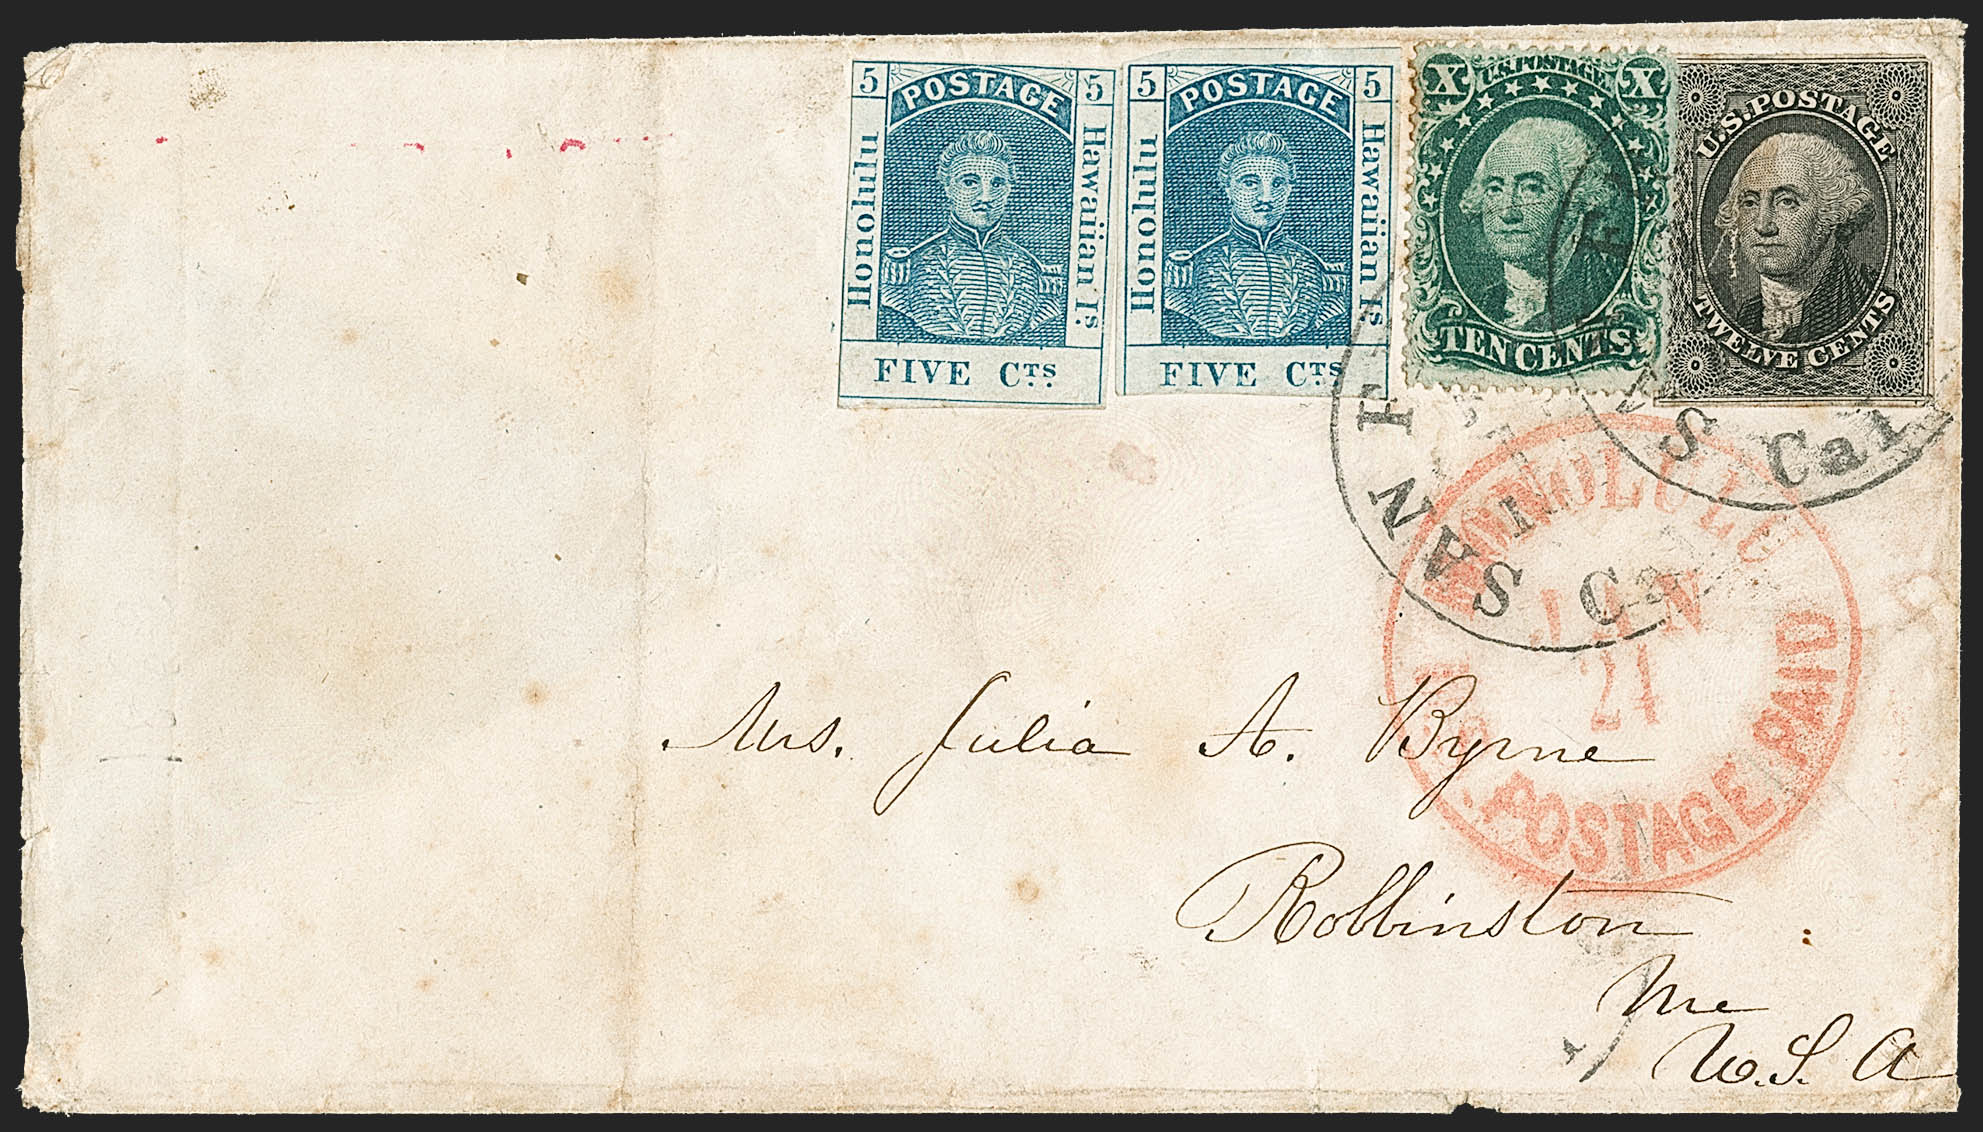 5 POSTAGE 5
Honolulu
Hawaiian Is.
FIVE Cts.
5 POSTAGE 5
Honolulu
Hawaiian Is.
FIVE Cts.
X U.S. POSTAGE X
TEN CENTS
U.S. POSTAGE
TWELVE CENTS
SAN F
Cal
S
Cal
HONOLULU
JAN
21
U.S. POSTAGE PAID
Mrs. Julia A. Byrne
Robbinston
Me
U.S. A